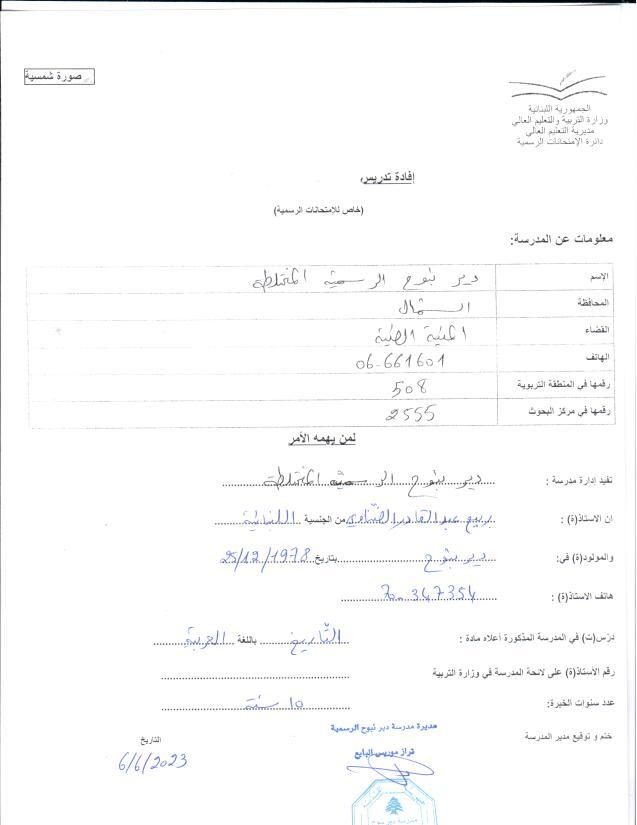 صورة شمسية
الجمهورية اللبنانية
وزارة التربية والتعليم العالي
مديرية التعليم العالي
دائرة الإمتحانات الرسمية
إفادة تدريس
(خاص للإمتحانات الرسمية)
معلومات عن المدرسة:
الإسم دير نبوح الرسمية المختلطة
المحافظة الشمال
القضاء المنية الضنية
الهاتف 06-661601
رقمها في المنطقة التربوية 508
رقمها في مركز البحوث 2555
لمن يهمه الأمر
تفيد إدارة مدرسة : دير نبوح الرسمية المختلطة
ان الاستاذ(ة) : ربيع عبد القادر الضناوي من الجنسية اللبنانية
والمولود(ة) في: دير نبوح بتاريخ 25/12/1978
هاتف الاستاذ(ة) : 70-347354
درّس(ت) في المدرسة المذكورة أعلاه مادة : التاريخ باللغة العربية
رقم الأستاذ(ة) على لائحة المدرسة في وزارة التربية
عدد سنوات الخبرة: ١٥ سنة
ختم و توقيع مدير المدرسة
مديرة مدرسة دير نبوح الرسمية
تراز موريس البايع
التاريخ
6/6/2023
مدرسة دير نبوح